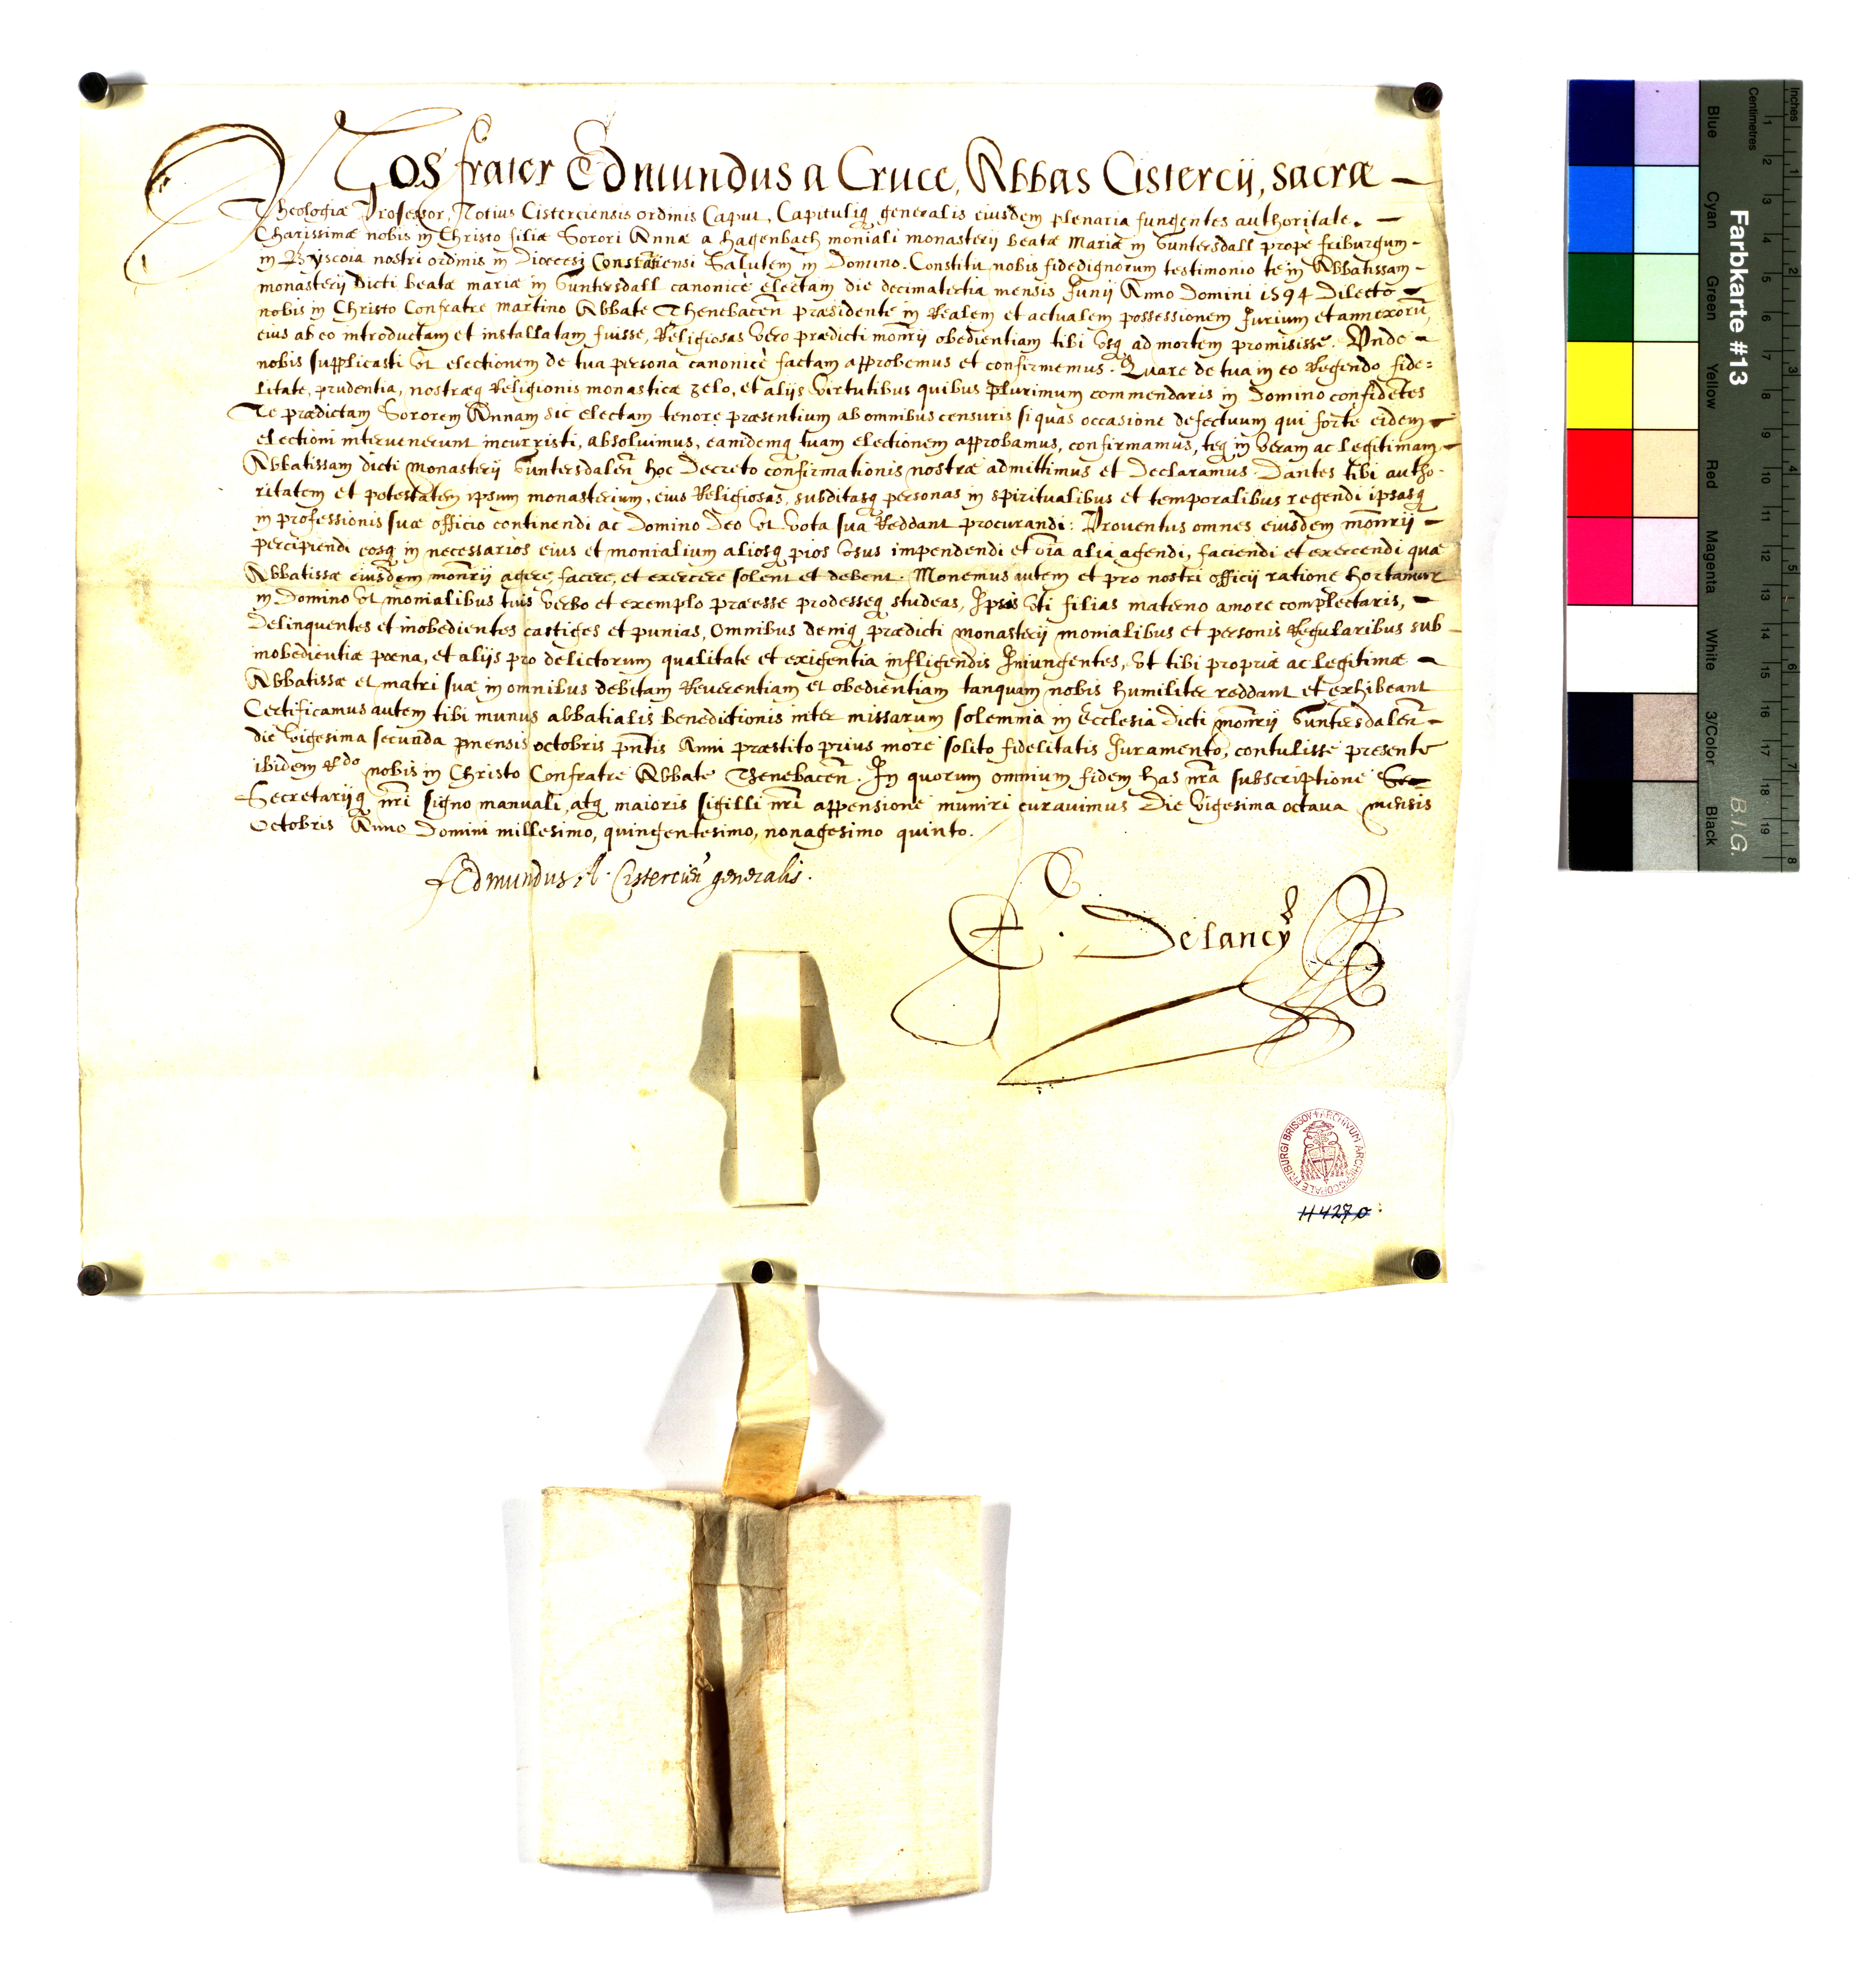 Nos frater Edmundus a Cruce, Abbas Cistercij, sacræ
Theologiæ Professor, Totius Cisterciensis ordinis Caput, Capituliq generalis eiusdem plenaria fungentes authoritate.
Charissimæ nobis in Christo filiæ Sorori Annæ a Hagenbach moniali monasterij beatæ Mariæ in Guntersdall prope friburgum
in Bryscoia nostri ordinis in Diœcesi Constātiensi Salutem in Domino. Constitit nobis fidedignorum testimonio te in Abbatissam
monasterij dicti beatæ mariæ in Guntersdall canonicè electam die decimatertia mensis Junij Anno Domini 1594 Dilecto
nobis in Christo Confratre martino Abbate Thenebaceñ præsidente in Realem et actualem possessionem Jurium et annexorū
eius ab eo introductam et installatam fuisse, Religiosas vero prædicti moñrij obedientiam tibi vsq ad mortem promisisse. Vnde
nobis supplicasti vt electionem de tua persona canonicè factam approbemus et confirmemus. Quare de tua in eo Regendo fide=
litate, prudentia, nostræq Religionis monasticæ zelo, et alijs virtutibus quibus plurimum commendaris in Domino confidētes
Te prædictam Sororem Annam sic electam tenore præsentium ab omnibus censuris si quas occasione defectuum qui forte eidem
electioni intervenerunt incurristi, absoluimus, eamdemq tuam electionem approbamus, confirmamus, teq in veram ac legitimam
Abbatissam dicti monasterij Guntersdaleñ hoc Decreto confirmationis nostræ admittimus et Declaramus. Dantes tibi autho-
ritatem et potestatem ipsum monasterium, eius Religiosas, subditasq personas in spiritualibus et temporalibus regendi ipsasq
in professionis suæ officio continendi ac Domino Deo vt vota sua Reddant procurandi: Prouentus omnes eiusdem moñrij
percipiendi eosq in necessarios eius et monialium aliosq pios vsus impendendi et oīa alia agendi, faciendi et exercendi quæ
Abbatissæ eiusdem moñrij agere, facere, et exercere solent et debent. Monemus autem et pro nostri officij ratione hortamur
in Domino vt monialibus tuis verbo et exemplo præesse prodesseq studeas, Ipsas vti filias materno amore complectaris,
Delinquentes et inobedientes castiges et punias, Omnibus deniq prædicti monasterij monialibus et personis Regularibus sub
inobedientiæ pœna, et alijs pro delictorum qualitate et exigentia infligendis Iniungentes, vt tibi propriæ ac legitimæ
Abbatissæ et matri suæ in omnibus debitam Reuerentiam et obedientiam tanquam nobis humiliter reddant et exhibeant
Certificamus autem tibi munus abbatialis benedictionis inter missarum solemnia in Ecclesia dicti moñrij Guntersdaleñ
die vigesima secunda mensis octobris pñtis Anni præstito prius more solito fidelitatis Juramento, contulisse presente
ibidem Rdo nobis in Christo Confratre Abbate Thenebaceñ. In quorum omnium fidem has nrā subscriptione
Secretarijq nr̄i signo manuali, atq maioris sigilli nr̄i appensione muniri curauimus Die vigesima octaua mensis
Octobris Anno Domini millesimo, quingentesimo, nonagesimo quinto.
f Edmundus A. Cisterciēn generalis.
F. Delancy
ARCHIVUM ARCHIEPISCOPALE FRIBURGI BRISGOV
H4270
Farbkarte #13
B.I.G.
Blue Cyan Green Yellow Red Magenta White 3/Color Black
Inches 1 2 3 4 5 6 7 8
Centimetres 1 2 3 4 5 6 7 8 9 10 11 12 13 14 15 16 17 18 19